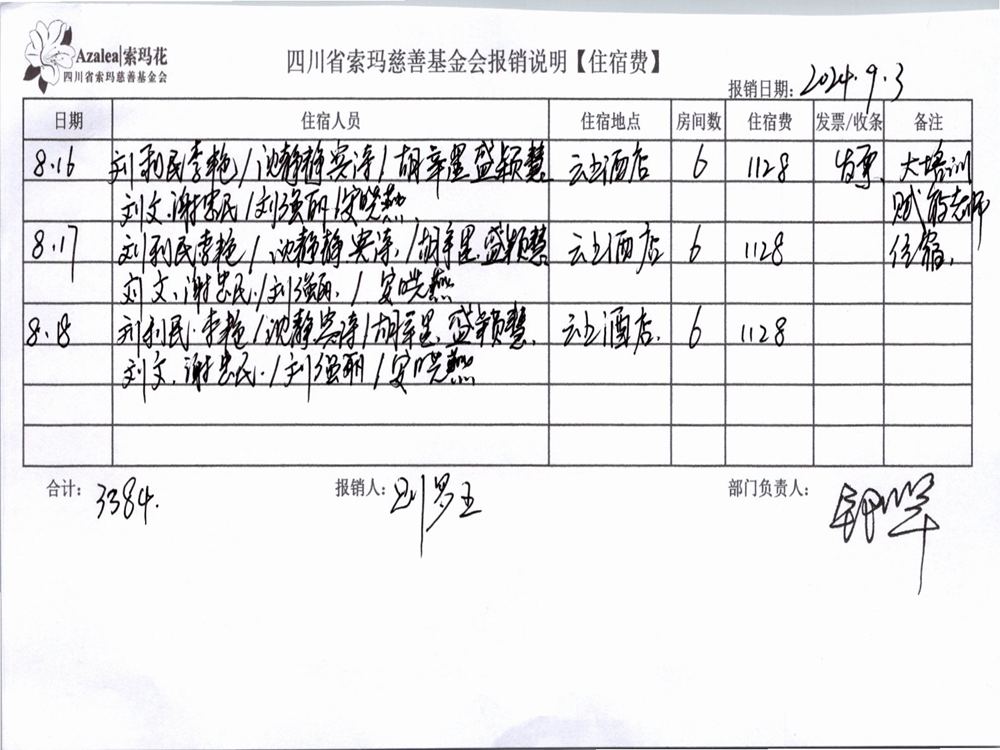 Azalea|索玛花
四川省索玛慈善基金会
四川省索玛慈善基金会报销说明【住宿费】
报销日期: 2024.9.3
日期 住宿人员 住宿地点 房间数 住宿费 发票/收条 备注
8.16 刘利民.李艳/沈静静 宾涛/胡辛星 盛颖慧. 云上酒店 6 1128 发票 大培训
刘文.谢忠民/刘强丽/安晓燕 赋能老师
8.17 刘利民.李艳/沈静静 宾涛./胡辛星.盛颖慧 云上酒店 6 1128 住宿.
刘文.谢忠民./刘强丽./安晓燕
8.18 刘利民.李艳/沈静 宾涛/胡辛星.盛颖慧. 云上酒店. 6 1128
刘文.谢忠民./刘强丽/安晓燕
合计: 3384. 报销人: 部门负责人: